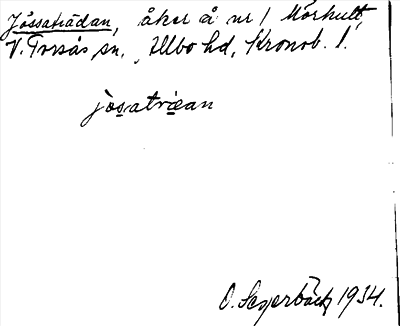 Jössaträdan, åker å nr 1 Mörhult,
V. Torsås sn, Allbo hd, Kronob. l.
jòsatræan
O. Segerbäck 1934.